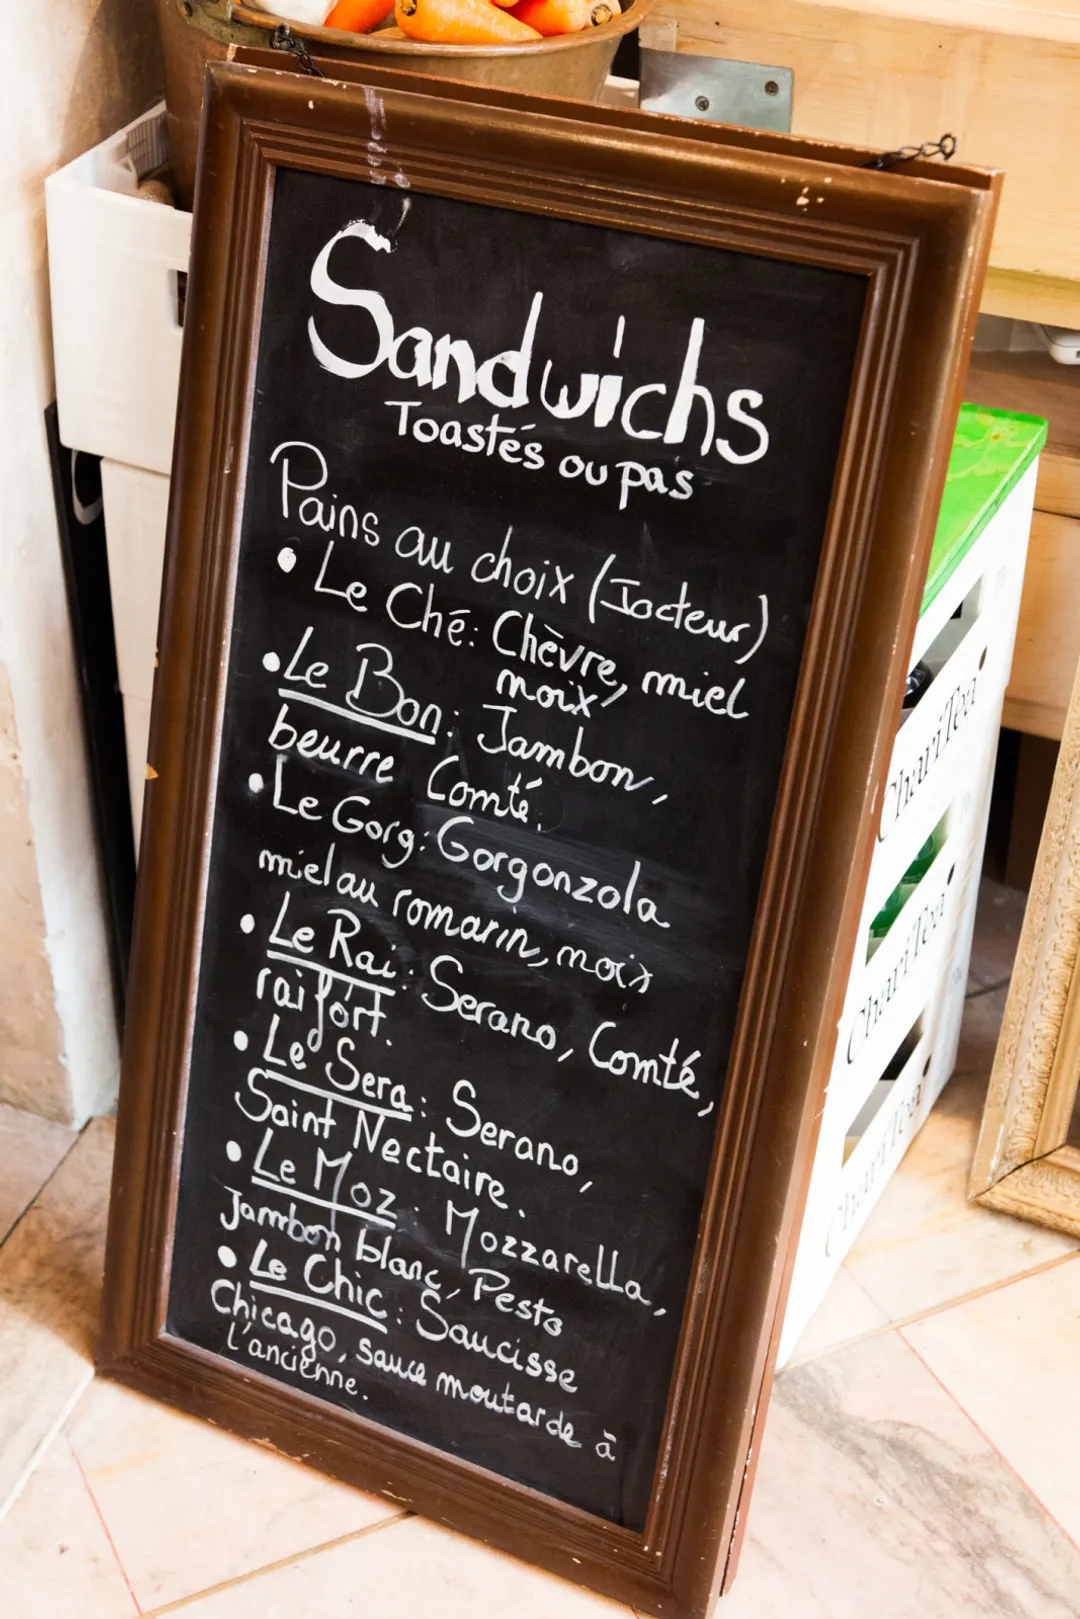 Sandwichs
Toastés ou pas
Pains au choix (Jocteur)
• Le Ché: Chèvre, miel
noix
• Le Bon: Jambon,
beurre Comté.
• Le Gorg: Gorgonzola
miel au romarin, noix
• Le Rai: Serano, Comté,
raifort.
• Le Sera: Serano,
Saint Nectaire.
• Le Moz: Mozzarella,
Jambon blanc, Pesto
• Le Chic: Saucisse
Chicago, sauce moutarde à
L'ancienne.
ChariTea
ChariTea
ChariTea